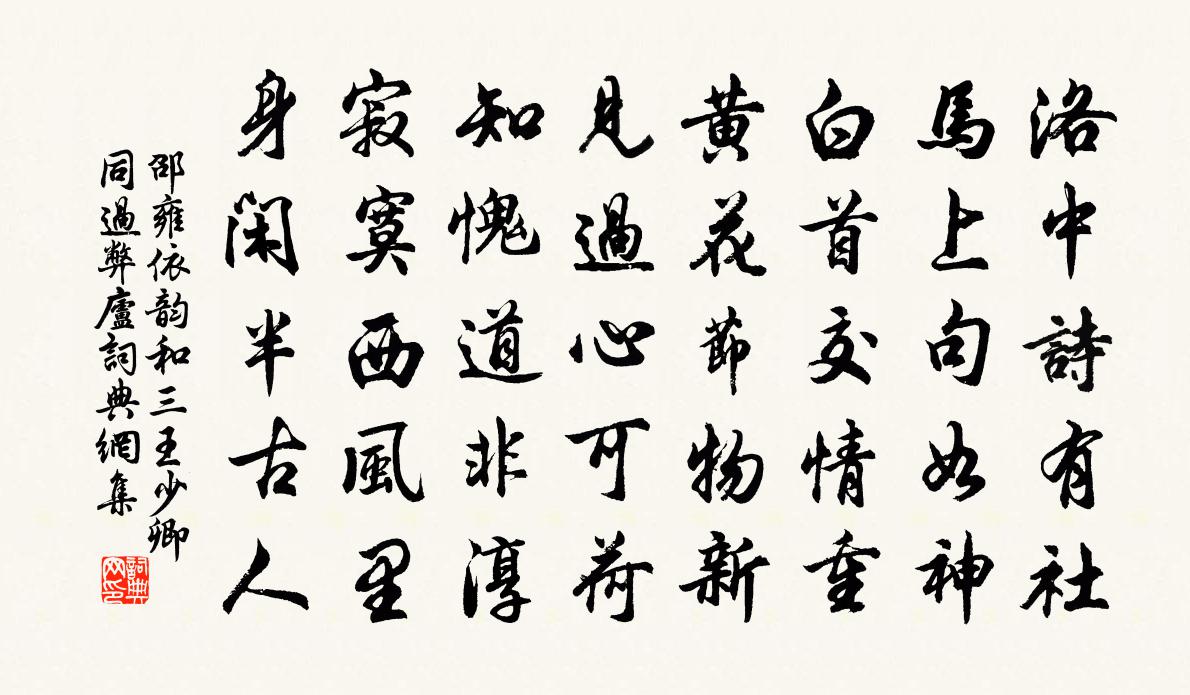 洛中詩有社
馬上句如神
白首交情重
黃花節物新
見過心可荷
知愧道非淳
寂寞西風里
身閑半古人
邵雍依韵和三王少卿
同過弊廬詞典網集
詞典
网印